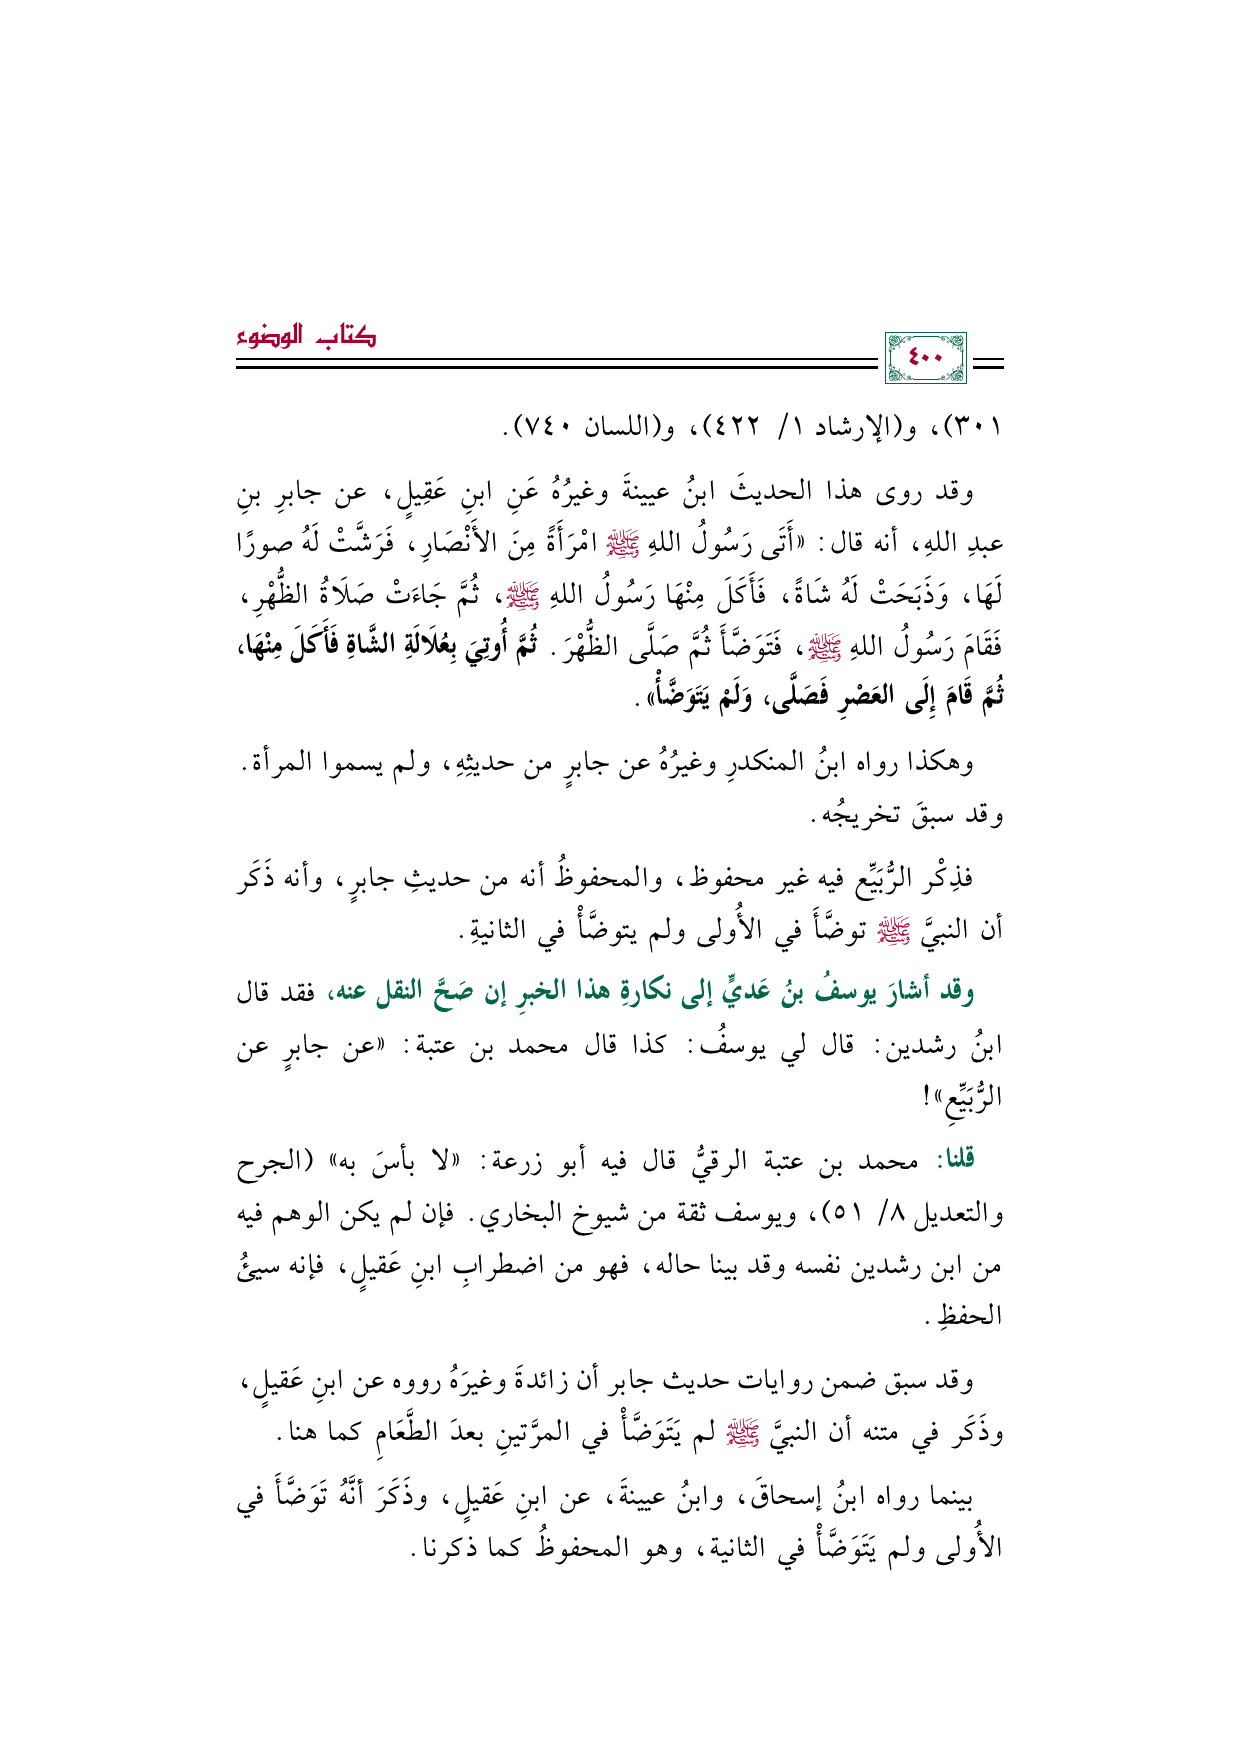 كتاب الوضوء
٤٠٠
٣٠١)، و(الإرشاد ١/ ٤٢٢)، و(اللسان ٧٤٠).
وقد روى هذا الحديثَ ابنُ عيينةَ وغيرُهُ عَنِ ابنِ عَقِيلٍ، عن جابرِ بنِ
عبدِ اللهِ، أنه قال: «أَتَى رَسُولُ اللهِ ﷺ امْرَأَةً مِنَ الأَنْصَارِ، فَرَشَّتْ لَهُ صورًا
لَهَا، وَذَبَحَتْ لَهُ شَاةً، فَأَكَلَ مِنْهَا رَسُولُ اللهِ ﷺ، ثُمَّ جَاءَتْ صَلَاةُ الظُّهْرِ،
فَقَامَ رَسُولُ اللهِ ﷺ، فَتَوَضَّأَ ثُمَّ صَلَّى الظُّهْرَ. ثُمَّ أُوتِيَ بِعُلَالَةِ الشَّاةِ فَأَكَلَ مِنْهَا،
ثُمَّ قَامَ إِلَى العَصْرِ فَصَلَّى، وَلَمْ يَتَوَضَّأْ».
وهكذا رواه ابنُ المنكدرِ وغيرُهُ عن جابرٍ من حديثِهِ، ولم يسموا المرأة.
وقد سبقَ تخريجُه.
فذِكْر الرُّبَيِّع فيه غير محفوظ، والمحفوظُ أنه من حديثِ جابرٍ، وأنه ذَكَر
أن النبيَّ ﷺ توضَّأَ في الأُولى ولم يتوضَّأْ في الثانيةِ.
وقد أشارَ يوسفُ بنُ عَديٍّ إلى نكارةِ هذا الخبرِ إن صَحَّ النقل عنه، فقد قال
ابنُ رشدين: قال لي يوسفُ: كذا قال محمد بن عتبة: «عن جابرٍ عن
الرُّبَيِّعِ»!
قلنا: محمد بن عتبة الرقيُّ قال فيه أبو زرعة: «لا بأسَ به» (الجرح
والتعديل ٨/ ٥١)، ويوسف ثقة من شيوخ البخاري. فإن لم يكن الوهم فيه
من ابن رشدين نفسه وقد بينا حاله، فهو من اضطرابِ ابنِ عَقيلٍ، فإنه سيئُ
الحفظِ.
وقد سبق ضمن روايات حديث جابر أن زائدةَ وغيرَهُ رووه عن ابنِ عَقيلٍ،
وذَكَر في متنه أن النبيَّ ﷺ لم يَتَوَضَّأْ في المرَّتينِ بعدَ الطَّعَامِ كما هنا.
بينما رواه ابنُ إسحاقَ، وابنُ عيينةَ، عن ابنِ عَقيلٍ، وذَكَرَ أنَّهُ تَوَضَّأَ في
الأُولى ولم يَتَوَضَّأْ في الثانية، وهو المحفوظُ كما ذكرنا.